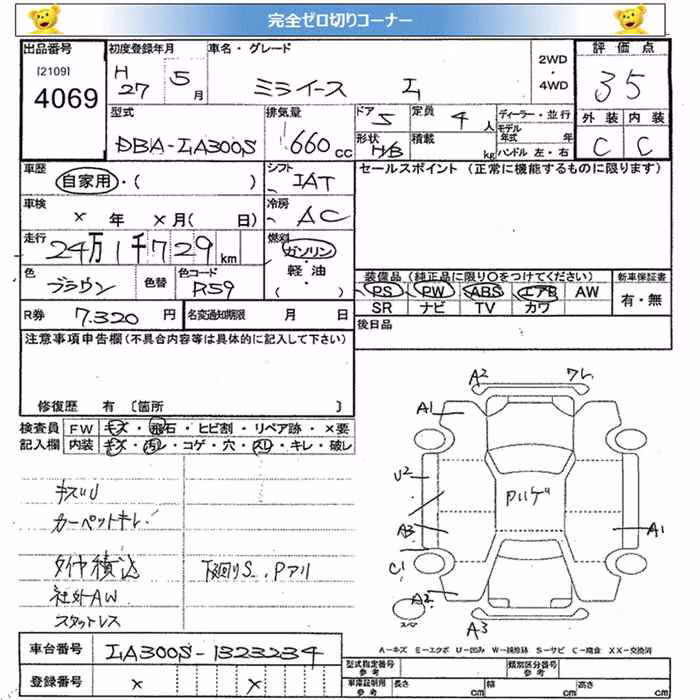 完全ゼロ切りコーナー
出品番号 初度登録年月 車名・グレード 2WD・4WD 評価点
[2109] 4069 H27 5月 ミライース L 35
型式 排気量 ドア 定員 ディーラー・並行 外装 内装
DBA-LA300S 660cc 5 4人 モデル年式 年 C C
形状 積載 ハンドル 左・右
H/B kg
車歴 シフト セールスポイント (正常に機能するものに限ります)
自家用・( ) IAT
車検 冷房
×年 ×月( 日) AC
走行 燃料
24万1千729km ガソリン
軽油
( )
色 色替 色コード 装備品 (純正品に限り○をつけてください) 新車保証書
ブラウン R59 PS PW ABS エアB AW 有・無
SR ナビ TV カワ
R券 7.320円 名変通知期限 月 日 後日品
注意事項申告欄(不具合内容等は具体的に記入して下さい)
修復歴 有 [箇所 ]
検査員 FW キズ・飛石・ヒビ割・リペア跡・×要
記入欄 内装 キズ・汚レ・コゲ・穴・スレ・キレ・破レ
キズU
カーペットキレ
タイヤ積込 下回りS、Pアリ
社外AW
スタットレス
A2 ワレ
A1
U2
Pハゲ
A3 A1
C1
A2
スペ
A3
A-キズ E-エクボ U-凹み W-補修跡 S-サビ C-腐食 XX-交換済
車台番号 LA300S-1323234
登録番号 × ×
型式指定番号 参考 類別区分番号 参考
車庫証明用 参考 長さ cm 幅 cm 高さ cm